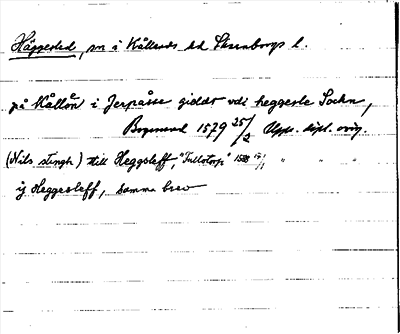 Häggesled, sn i Kållands hd Skaraborgs l.
på Kållön i Jerpåsse giddet vdi heggesle Sockn,
Borgensund 1579 25/2 Upps. dipl. orig.
(Nils stingh) till Heggsleff, "Tullstorp" 1583 " " "
ij Heggesleff, samma brev